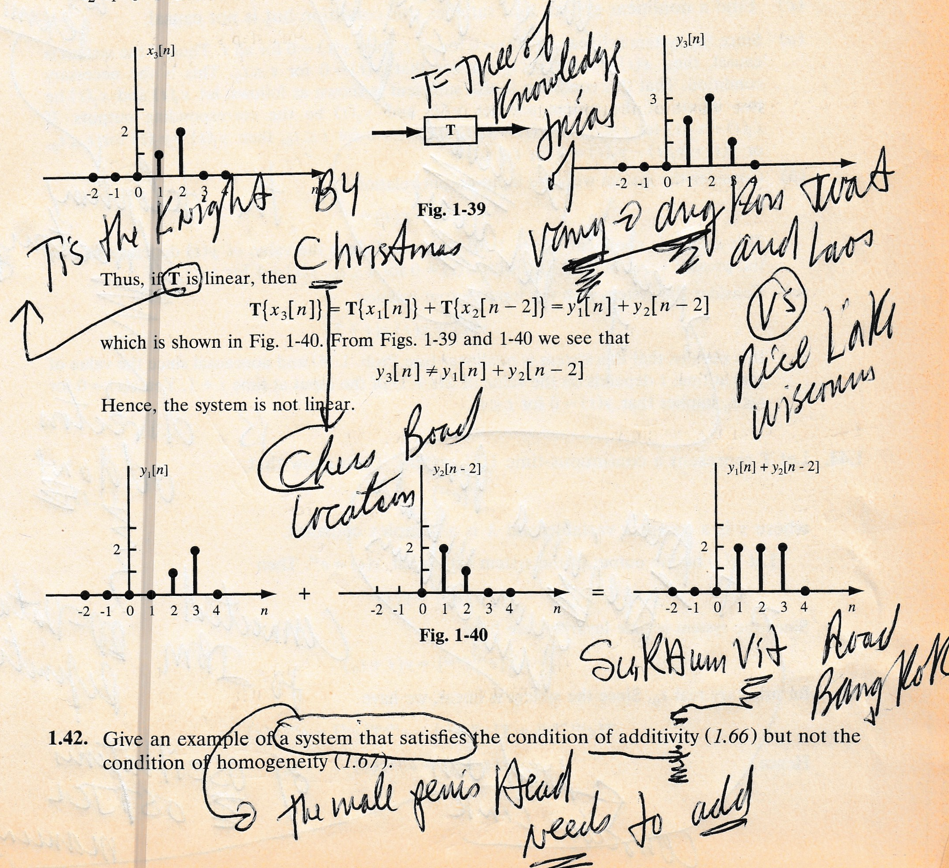 x₃[n]
2
-2 -1 0 1 2 3 4 n
T
Fig. 1-39
y₃[n]
3
-2 -1 0 1 2 3 4
T = Tree of
Knowledge
trial
of
Tis the Knight B4
Christmas
Vang → dng Kon Twat
and Laos
VS
Rice Lake
Wisconsin
Thus, if T is linear, then
T{x₃[n]} = T{x₁[n]} + T{x₂[n − 2]} = y₁[n] + y₂[n − 2]
which is shown in Fig. 1-40. From Figs. 1-39 and 1-40 we see that
y₃[n] ≠ y₁[n] + y₂[n − 2]
Hence, the system is not linear.
Chess Board
Location
y₁[n]
2
-2 -1 0 1 2 3 4 n
+
y₂[n - 2]
2
-2 -1 0 1 2 3 4 n
=
y₁[n] + y₂[n - 2]
2
-2 -1 0 1 2 3 4 n
Fig. 1-40
SuKHumVit Road
Bangkok
1.42. Give an example of a system that satisfies the condition of additivity (1.66) but not the
condition of homogeneity (1.67).
the male penis Head
needs to add